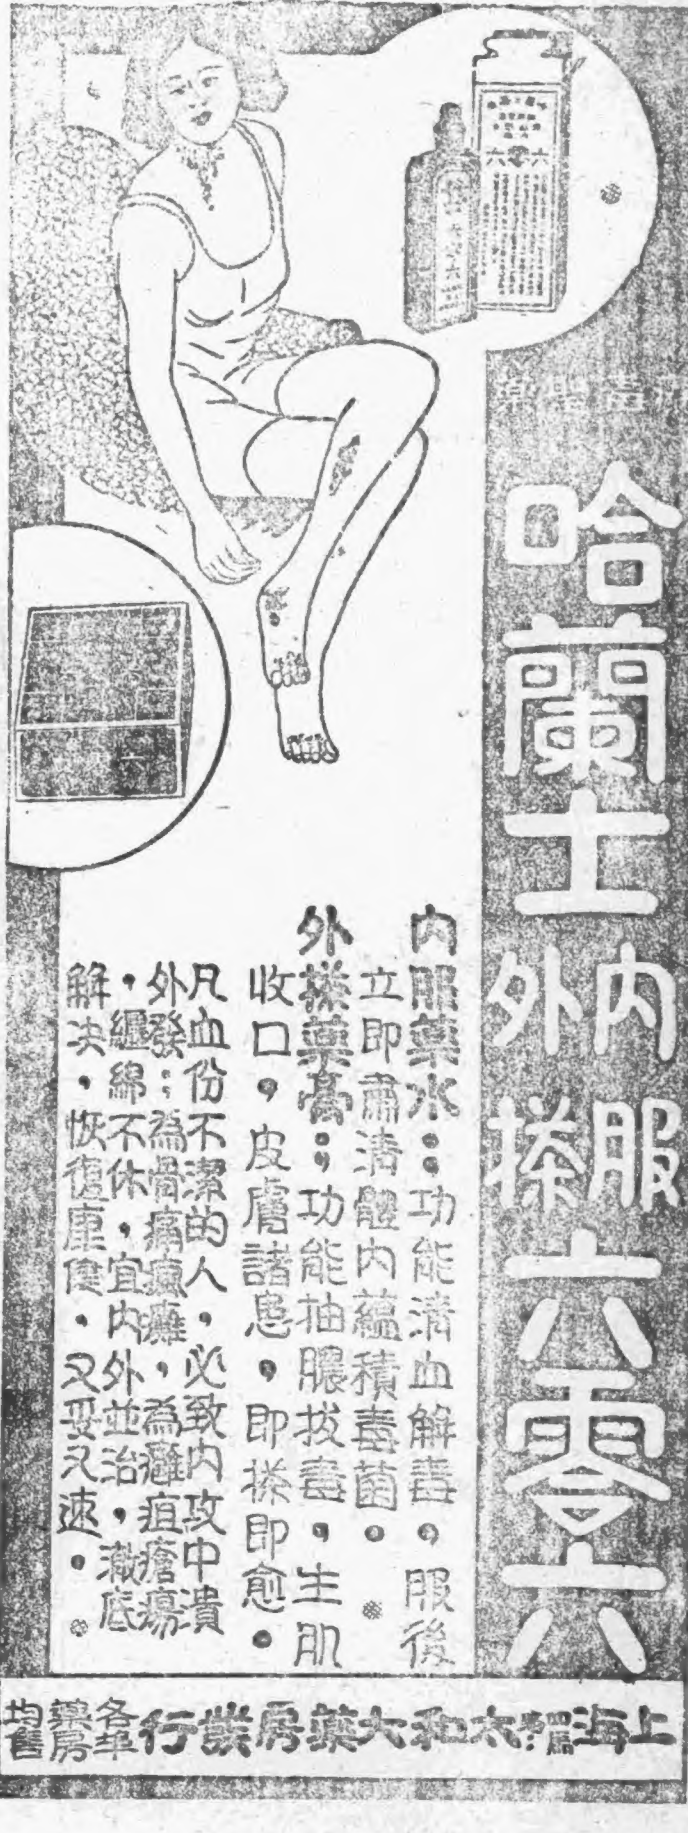 哈蘭士
內服
外搽
六零六
內服藥水：功能清血解毒，服後
立即肅清體內蘊積毒菌。
外搽藥膏：功能抽膿拔毒，生肌
收口，皮膚諸患，即搽即愈。
凡血份不潔的人，必致內攻中潰
外發：為骨痛瘋癱，為癰疽瘡瘍
，纏綿不休，宜內外並治，澈底
解决，恢復康健，又妥又速。
上海太和大藥房發行
各埠藥房均售